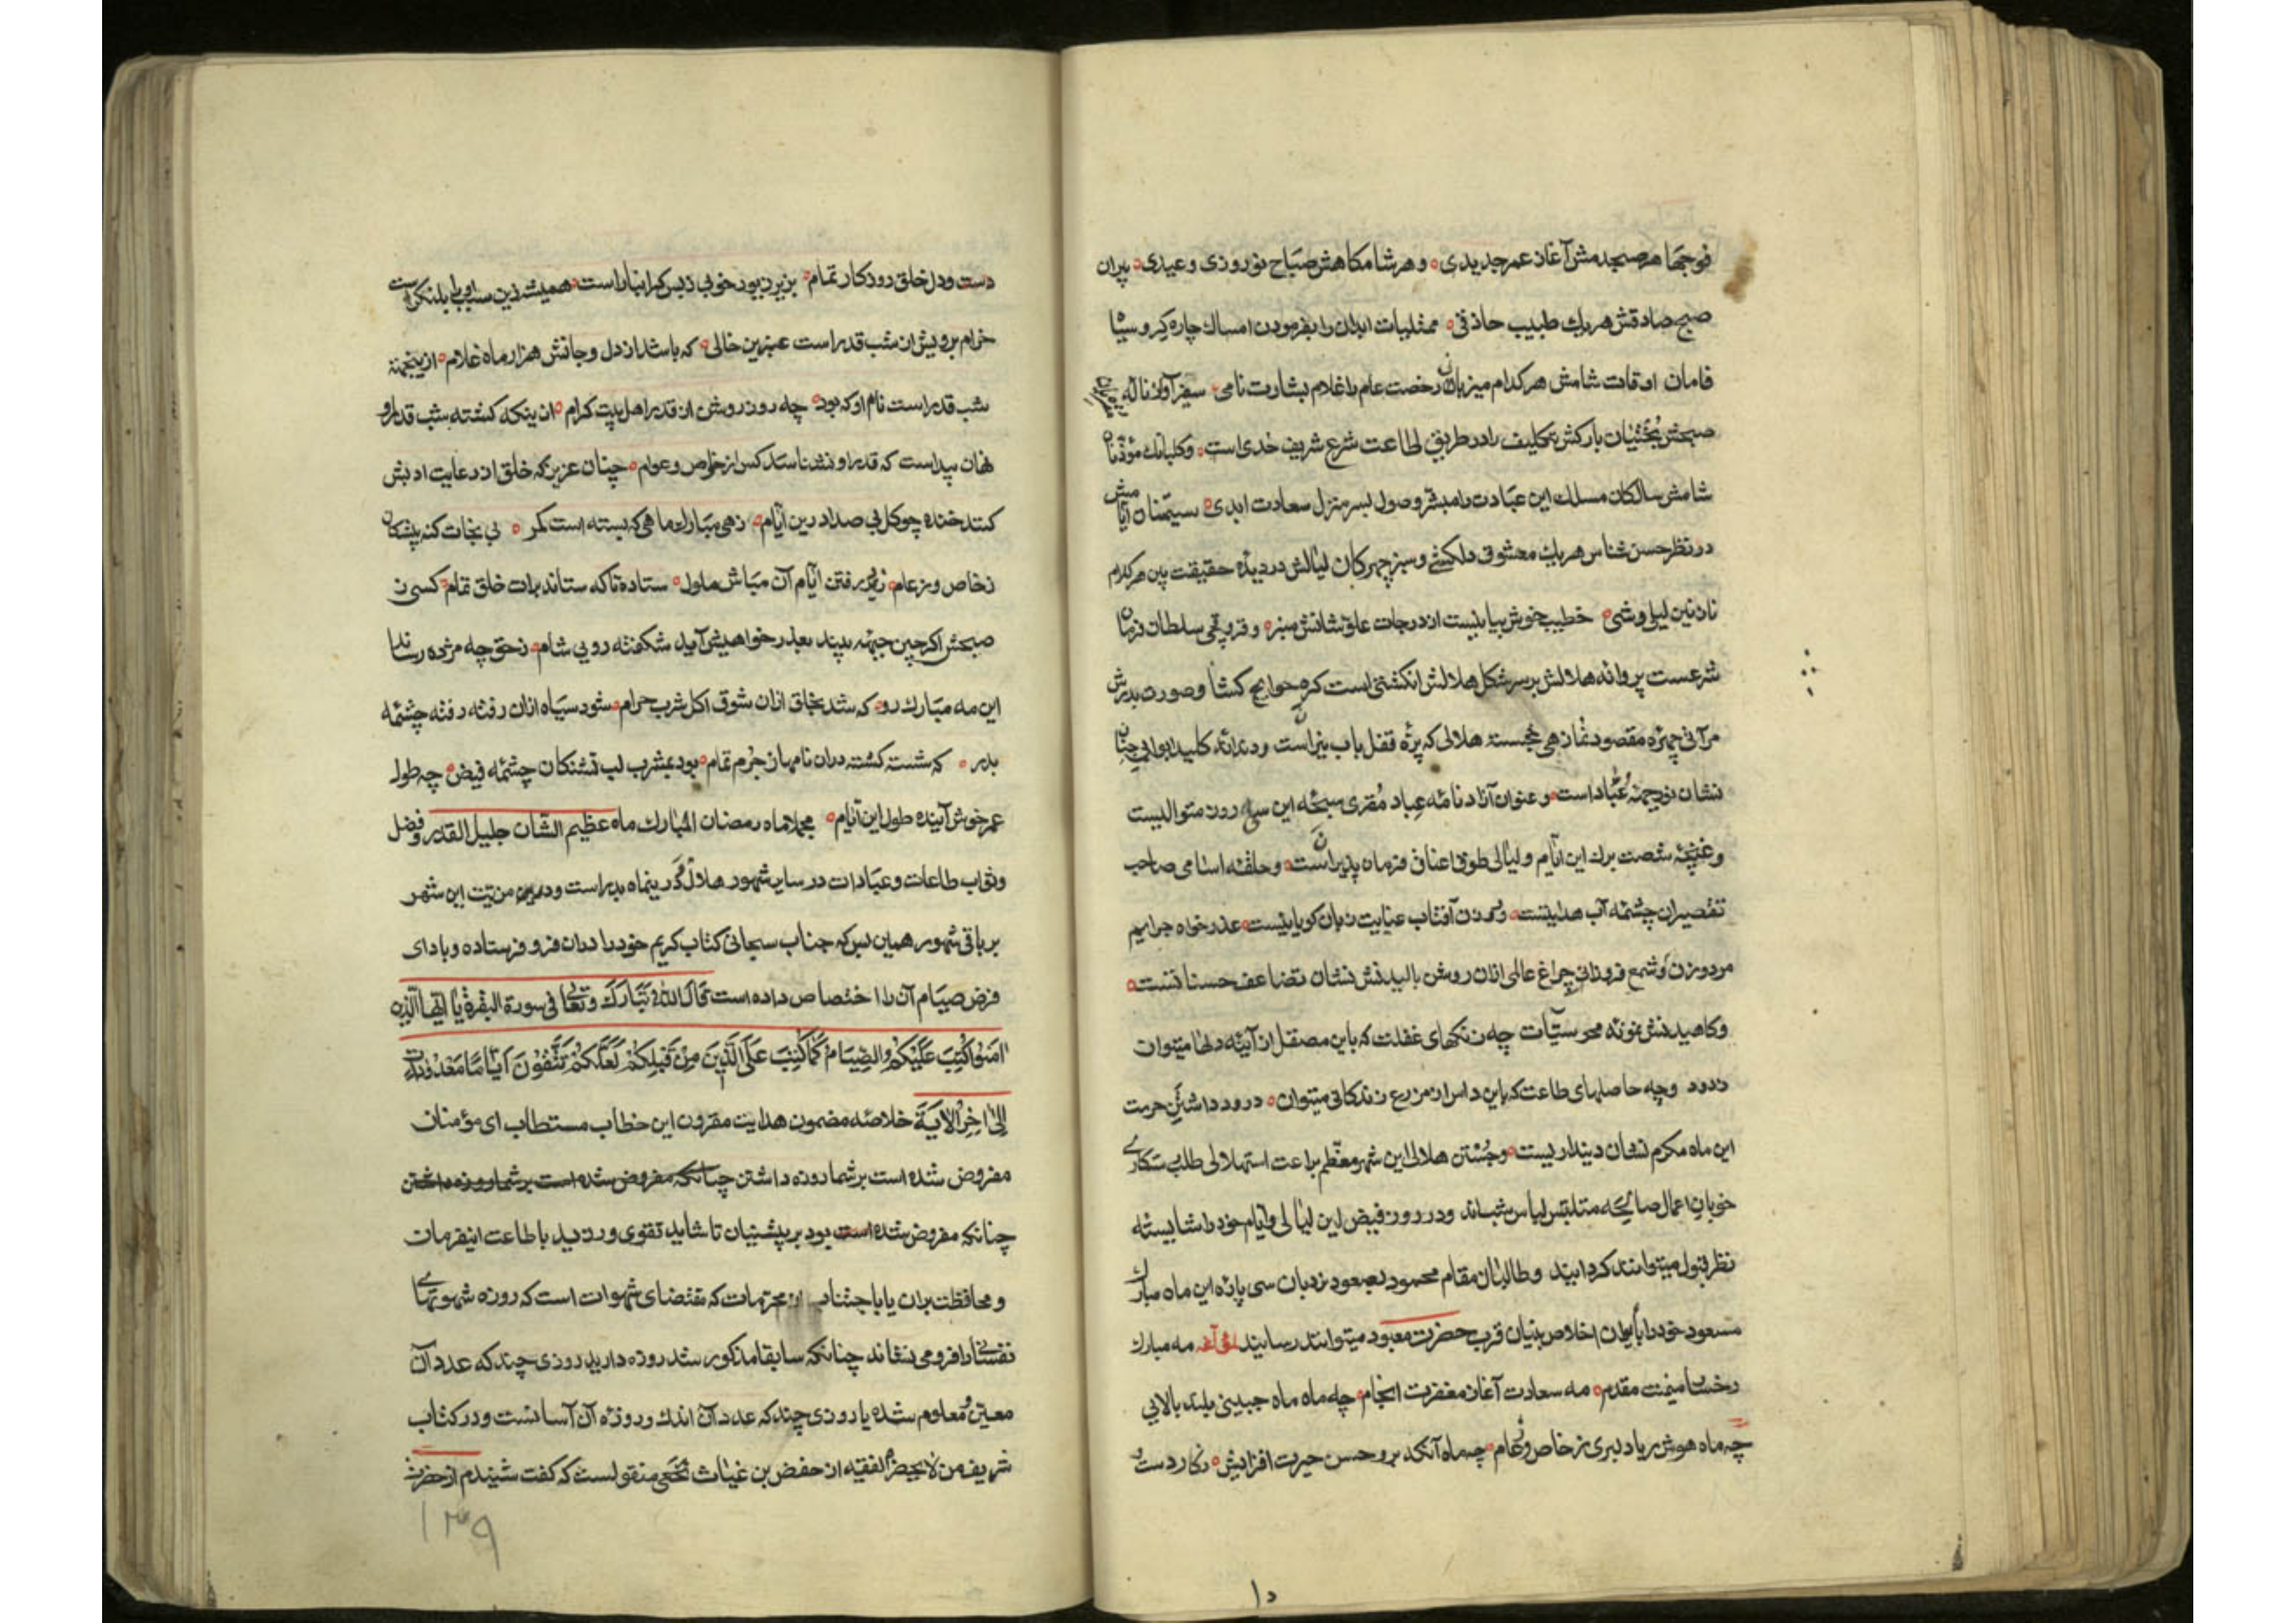 هر صبحدمش آغاز عمر جدیدی و هر شامکاهش صباح نوروزی و عیدی پیران
صبح صادقش هریك طبیب حاذقی ابدان را بفرمودن امساك چاره کر و
اوقات شامش هر کدام رخصت عام با غلام بشارت نامی
صبحش بارکش تکلیف را در طریق اطاعت شرع شریف است
شامش سالکان مسلك این عبادت را مبشر وصول بسر منزل سعادت ابدی
در نظر حسن شناس هریك معشوقی دلکشی و لیالش در دیدهٔ حقیقت بین هر کدام
نازنین لیلی وشی خطیب خوش بیانیست از درجات علو شانش منبر و سلطان
شرعست پروانه هلالش بر سر شکل هلالش انکشتی است کره حوایج کشا و صورت بدرش
مقصود نما زهی خجسته هلالی که قفل باب است و دندانه کلید ابواب جنان
نشان عباد است و عنوان نامه عباد این سی روز متوالیست
و شصت برك این ایام و لیالی طوق اعناق فرمان پذیران است و حلقه اسامی صاحب
تقصیران چشمه آب هدایتست آفتاب عنایت زبان کویاییست عذر خواه جرایم
مرد و زن و شمع فروزانی چراغ عالمی ازان روشن بالیدنش نشان تضاعف حسناتست
و کاهیدنش نمونه محو سیئات چه زنکهای غفلت که باین مصقل از آئینه دلها میتوان
زدود و چه حاصلهای طاعت که باین داس از مزرع زندکانی میتوان درود داشتن حرمت
این ماه مکرم نشان دینداریست و جستن هلال این شهر معظم براعت استهلال طلب
خوبان اعمال صالحه متلبس لباس و در روز فیض این لیالی و ایام خود را شایسته
نظر قبول میتوانند کردانید و طالبان مقام محمود بصعود نردبان سی پایه این ماه مبارك
مسعود خود را بایوان اخلاص بنیان قرب حضرت معبود میتوانند رسانید مه مبارك
مقدم مه سعادت آغاز مغفرت انجام چه ماه ماه جبینی بلند بالایی
چه ماه هوش ربا دلبری ز خاص و عام چه ماه آنکه بر و حسن حیرت افزایش نکار دست
۱۵
دست و دل خلق روزکار تمام بزیر زیور خوبی ز بس کرانبار است همیشه زین سبب او را
خرام شب قدر است عنبرین خالی که باشد از دل و جانش هزار ماه غلام
شب قدر است نام او که بود چه روز روشن از قدر اهل بیت کرام از ینکه کشته شب قدر او
نهان پیداست که قدر او نشناسد کس از خواص و عوام چنان عزیز که خلق از رعایت ادبش
کند خنده چو کل بی صدا درین ایام زهی مبارك ماهی که بسته است کمر پی نجات
ز خاص و ز عام رفتن ایام آن مباش ملول ستاده تا که ستاند برات خلق تمام کسی ز
صبحش اکر چین جبهه بیند بعذر خواهیش آید شکفته رویی شام ز حق چه مژده رساند
این مه مبارك رو که شد بخلق ازان شوق اکل شرب حرام شود سیاه ازان رفته رفته چشمه
بدر که شسته کشته دران نامها ز جرم تمام بود بمشرب لب تشنکان چشمه فیض چه طول
عمر خوش آینده طول این ایام مجملا ماه رمضان المبارك ماه عظیم الشان جلیل القدر و فضل
و ثواب طاعات و عبادات در سایر شهور هلال و درین ماه بدر است و در مزیت این شهر
بر باقی شهور همین بس که جناب سبحانی کتاب کریم خود را دران فرو فرستاده و بادای
فرض صیام آن را اختصاص داده است قال الله تبارك و تعالی فی سورة البقرة یا ایها الذین
امنوا کتب علیکم الصیام کما کتب علی الذین من قبلکم لعلکم تتقون ایاما معدودات
الی اخر الایة خلاصه مضمون هدایت مقرون این خطاب مستطاب ای مؤمنان
مفروض شده است بر شما روزه داشتن چنانکه مفروض شده است بر شما روزه داشتن
چنانکه مفروض شده است بود بر پیشینیان تا شاید تقوی ورزید باطاعت اینفرمان
و محافظت بران یا باجتناب از محرمات که مقتضای شهوات است که روزه شهوتهای
نفسانی را فرو می نشاند چنانکه سابقا مذکور شد روزه دارید روزی چند که عدد آن
معین و معلوم شده یا روزی چند که عدد آن اندك و روزه آن آسانست و در کتاب
شریف من لا یحضره الفقیه از حفص بن غیاث نخعی منقولست که کفت شنیدم از حضرت
۱۳۹